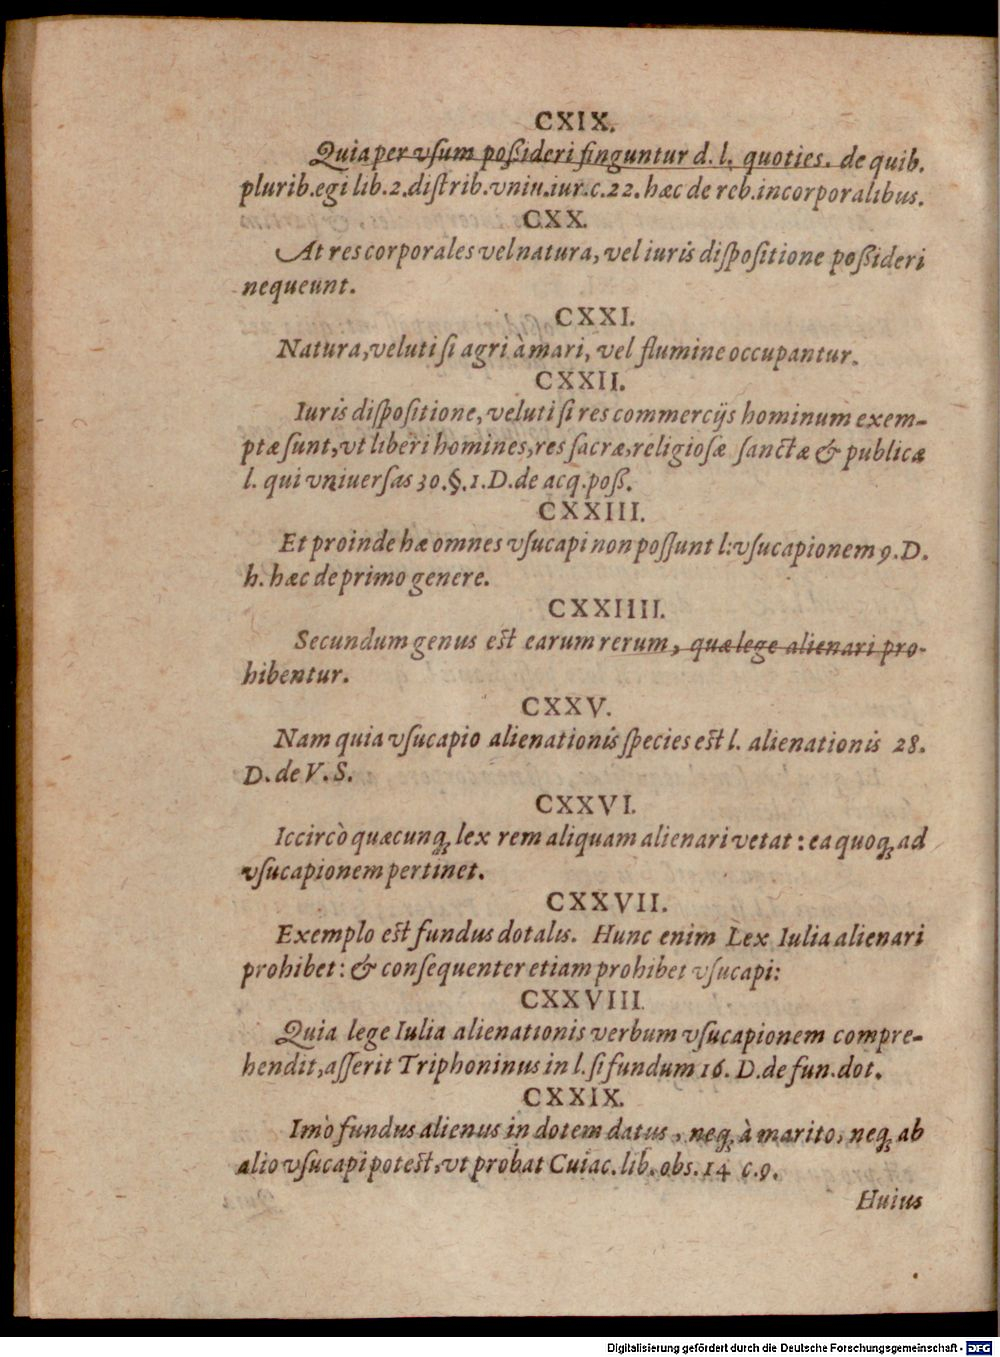 CXIX.
Quia per vſum poßideri finguntur d. l. quoties. de quib.
plurib. egi lib. 2. diſtrib. vniu. iur. c. 22. hæc de reb. incorporalibus.
CXX.
At res corporales vel natura, vel iuris diſpoſitione poßideri
nequeunt.
CXXI.
Natura, veluti ſi agri à mari, vel flumine occupantur.
CXXII.
Iuris diſpoſitione, veluti ſi res commercijs hominum exem-
ptæ ſunt, vt liberi homines, res ſacræ, religioſæ ſanctæ & publicæ
l. qui vniuerſas 30. §. 1. D. de acq. poß.
CXXIII.
Et proinde hæ omnes vſucapi non poſſunt l: vſucapionem 9. D.
h. hæc de primo genere.
CXXIIII.
Secundum genus eſt earum rerum, quæ lege alienari pro-
hibentur.
CXXV.
Nam quia vſucapio alienationis ſpecies eſt l. alienationis 28.
D. de V. S.
CXXVI.
Iccircò quæcunq; lex rem aliquam alienari vetat: ea quoq; ad
vſucapionem pertinet.
CXXVII.
Exemplo eſt fundus dotalis. Hunc enim Lex Iulia alienari
prohibet: & conſequenter etiam prohibet vſucapi:
CXXVIII.
Quia lege Iulia alienationis verbum vſucapionem compre-
hendit, aſſerit Triphoninus in l. ſi fundum 16. D. de fun. dot.
CXXIX.
Imò fundus alienus in dotem datus, neq; à marito, neq; ab
alio vſucapi poteſt, vt probat Cuiac. lib. obs. 14 c. 9.
Huius
Digitalisierung gefördert durch die Deutsche Forschungsgemeinschaft - DFG